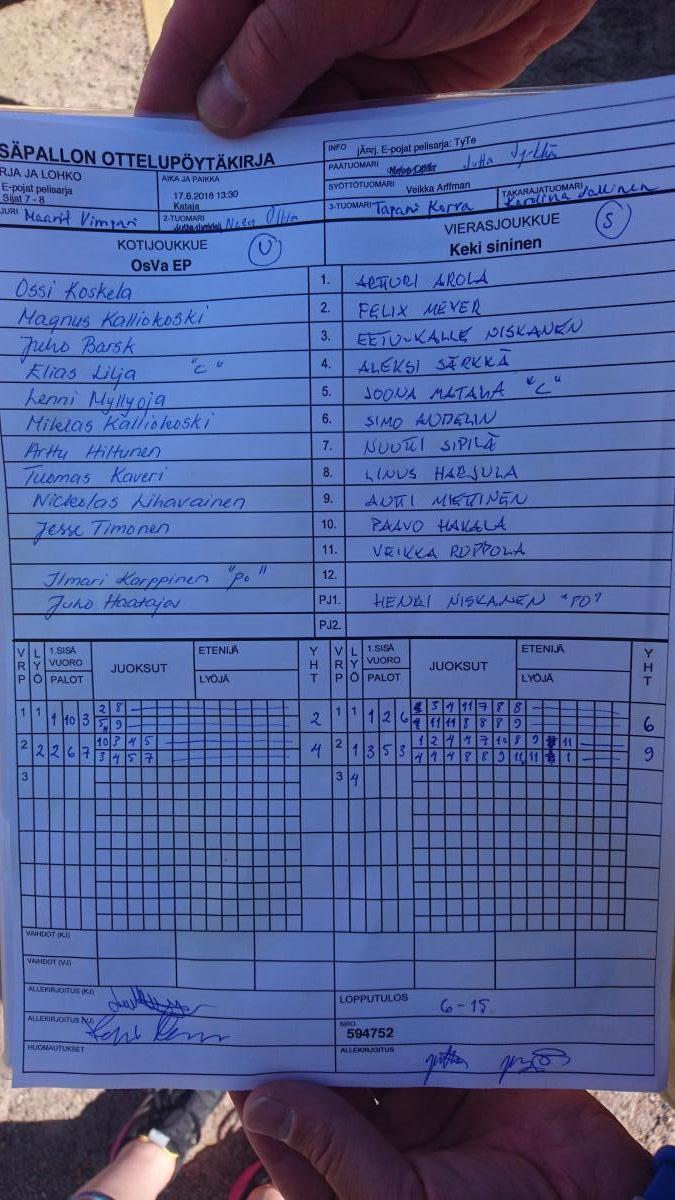 SÄPALLON OTTELUPÖYTÄKIRJA
INFO jÄnrj. E-pojat pelisarja: TyTe
RJA JA LOHKO
E-pojat pelisarja
Sijat 7 - 8
AIKA JA PAIKKA
17.6.2018 13:30
Kataja
PÄÄTUOMARI Jutta
SYÖTTÖTUOMARI Veikka Arffman
JURI Maarit Vimpari
2-TUOMARI
3-TUOMARI Tapani Korva
TAKARAJATUOMARI Karoliina Jallinen
KOTIJOUKKUE U
OsVa EP
VIERASJOUKKUE S
Keki sininen
Ossi Koskela 1. ARTTURI AROLA
Magnus Kalliokoski 2. FELIX MEYER
Juho Barsk 3. EETU-KALLE NISKANEN
Elias Lilja "C" 4. ALEKSI SÄRKKÄ
Lenni Myllyoja 5. JOONA MATALA "C"
Miklas Kalliokoski 6. SIMO AUDELIN
Arttu Hiltunen 7. NUUTTI SIPILÄ
Tuomas Kaveri 8. LINUS HARJULA
Nickolas Lihavainen 9. ANTTI MIETTINEN
Jesse Timonen 10. PAAVO HAKALA
11. VEIKKA ROPPOLA
Ilmari Karppinen "Po" 12.
Juho Haataja PJ1. HENRI NISKANEN "PO"
PJ2.
VRP LYÖ 1.SISÄ VUORO PALOT JUOKSUT ETENIJÄ LYÖJÄ YHT VRP LYÖ 1.SISÄ VUORO PALOT JUOKSUT ETENIJÄ LYÖJÄ YHT
1 1 1 10 3 2 8 2 1 1 1 2 6 3 4 11 7 8 8 6
5 9 4 11 11 8 8 8 9
2 2 2 6 7 10 3 4 5 4 2 1 3 5 3 1 2 4 4 7 10 8 9 11 9
3 4 5 7 4 4 4 8 8 9 11 11 1
3 3 4
VAIHDOT (KJ)
VAIHDOT (VJ)
ALLEKIRJOITUS (KJ)
LOPPUTULOS 6 - 15
ALLEKIRJOITUS (VJ)
NRO
594752
HUOMAUTUKSET
ALLEKIRJOITUS